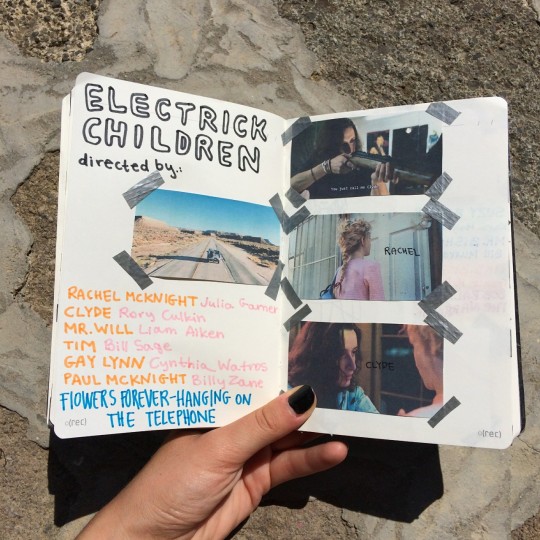 ELECTRICK
CHILDREN
directed by.:
RACHEL MCKNIGHT Julia Garner
CLYDE Rory Culkin
MR. WILL Liam Aiken
TIM Bill Sage
GAY LYNN Cynthia Watros
PAUL MCKNIGHT Billy Zane
FLOWERS FOREVER-HANGING ON
THE TELEPHONE
(rec)
RACHEL
CLYDE
(rec)